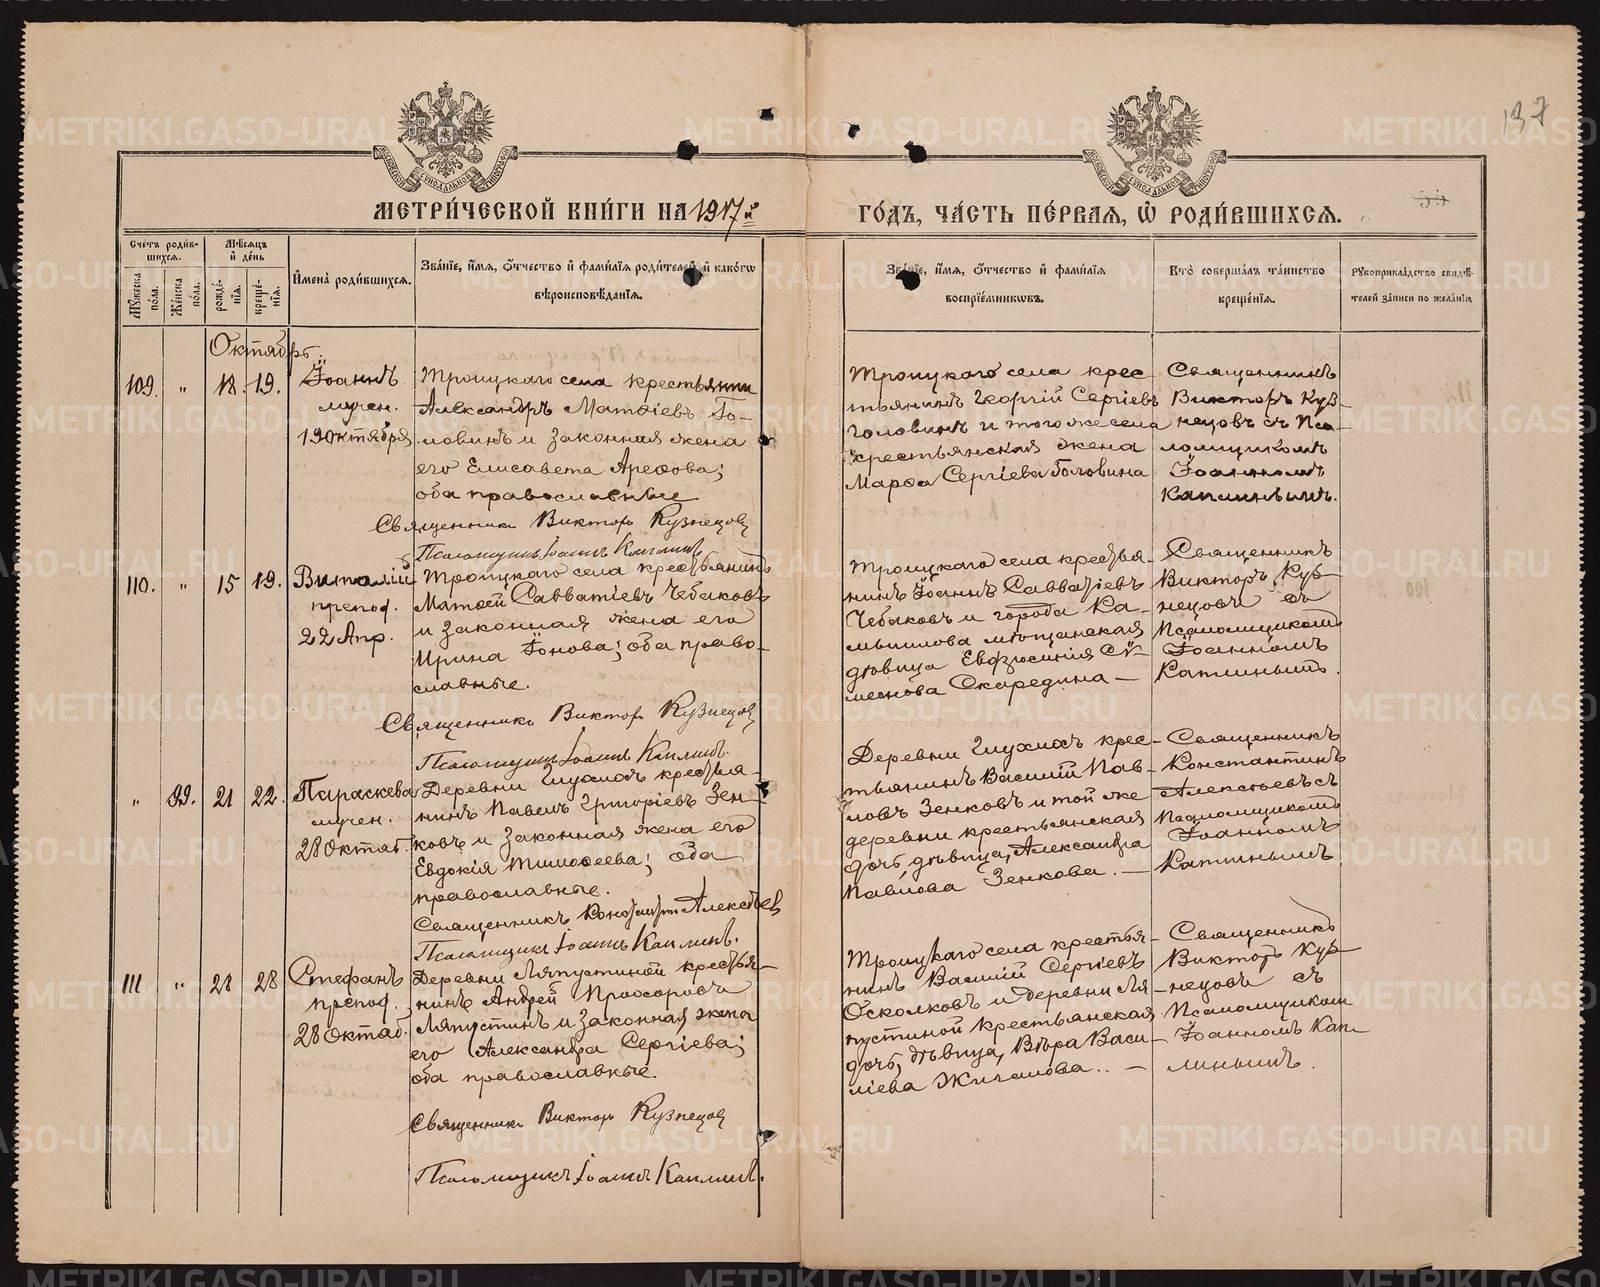 137
МЕТРИ́ЧЕСКОЙ КНИ́ГИ НА 1917й
ГО́ДЪ, ЧА́СТЬ ПЕ́РВАѦ, Ѡ РОДИ́ВШИХСѦ.
Сче́тъ роди́в-
шихсѧ.
Мѣ́сѧцъ
и̂ де́нь
Му́жеска
по́ла.
Же́нска
по́ла.
рожде́-
нїѧ.
креще́-
нїѧ.
И̂мена̀ роди́вшихсѧ.
Зва́нїе, и̂́мѧ, о̂́тчество и̂ фами́лїѧ роди́телей и̂ како́гѡ
вѣроисповѣ́данїѧ.
Зва́нїе, и̂́мѧ, о̂́тчество и̂ фами́лїѧ
воспрїе́мникѡвъ.
Кто̀ соверша́лъ та́инство
креще́нїѧ.
Рукоприкла́дство свидѣ́-
телей за́писи по жела́нїю.
Октябрь.
109. „ 18. 19.
Іоаннъ
мучен.
19 Октября
Троицкаго села крестьянин
Александръ Матѳіевъ Го-
ловинъ и законная жена
его Елисавета Ареѳова;
оба православные
Священник Виктор Кузнецов
Псаломщикъ Іоаннъ Каплинъ
Троицкаго села крес-
тьянинъ Георгій Сергіевъ
Головинъ и того же села
крестьянская жена
Марѳа Сергіева Головина
Священникъ
Викторъ Куз-
нецовъ съ Пса-
ломщикомъ
Іоанномъ
Каплинымъ.
110. „ 15 19.
Виталій
препод.
22 Апр.
Троицкаго села крестьянинъ
Матѳей Савватіевъ Чебаковъ
и законная жена его
Ирина Іонова; оба право-
славные.
Священникъ Виктор Кузнецов
Псаломщикъ Іоаннъ Каплинъ.
Троицкаго села крестья-
нинъ Іоаннъ Савватіевъ
Чебаковъ и города Ка-
мышлова мѣщанская
дѣвица Евфросинія Си-
меонова Скаредина —
Священникъ
Викторъ Куз-
нецовъ съ
Псаломщикомъ
Іоанномъ
Каплинымъ.
„ 99. 21 22.
Параскева
мучен.
28 Октяб.
Деревни Глухихъ крестья-
нинъ Павелъ Григоріевъ Зен-
ковъ и законная жена его
Евдокія Тимоѳеева; оба
православные.
Священникъ Константин Алексеев
Псаломщикъ Іоаннъ Каплинъ.
Деревни Глухихъ крес-
тьянинъ Василій Пав-
ловъ Зенковъ и той же
деревни крестьянская
дочь, дѣвица, Александра
Павлова Зенкова. —
Священникъ
Константинъ
Алексѣевъ съ
Псаломщикомъ
Іоанномъ
Каплинымъ
111 „ 21 28
Стефанъ
препод.
28 Октяб.
Деревни Ляпустиной крестья-
нинъ Андрей Прохоровъ
Ляпустинъ и законная жена
его Александра Сергіева;
оба православные.
Священник Виктор Кузнецов
Псаломщикъ Іоаннъ Каплинъ.
Троицкаго села крестья-
нинъ Василій Сергіевъ
Осколковъ и деревни Ля-
пустиной крестьянская
дочь, дѣвица, Вѣра Васи-
ліева Жигалова. . —
Священникъ
Викторъ Куз-
нецовъ съ
Псаломщикомъ
Іоанномъ Кап-
линымъ.
METRIKI.GASO-URAL.RU